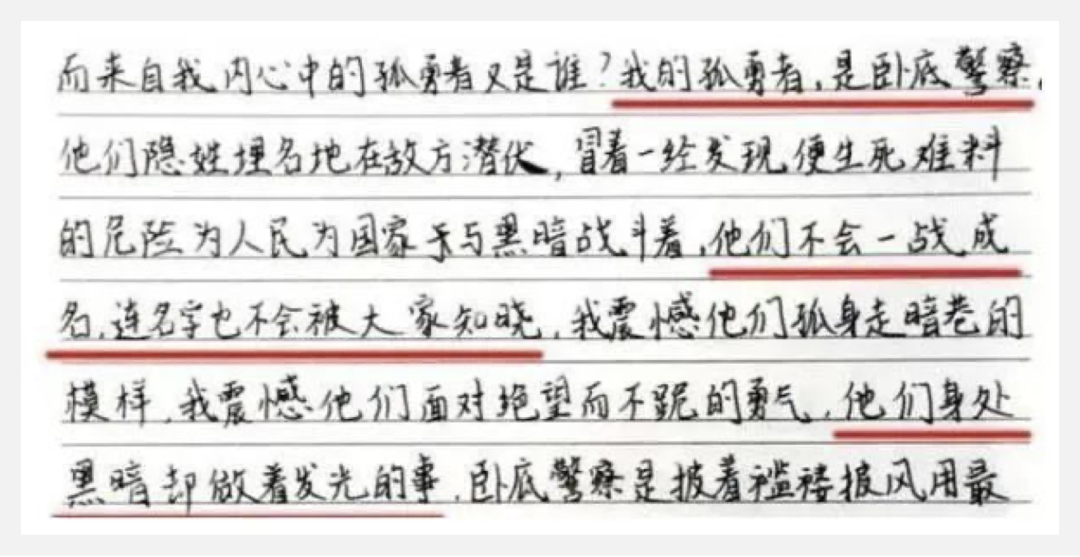 而来自我内心中的孤勇者又是谁?我的孤勇者,是卧底警察,
他们隐姓埋名地在敌方潜伏,冒着一经发现便生死难料
的危险为人民为国家于与黑暗战斗着,他们不会一战成
名,连名字也不会被大家知晓,我震憾他们孤身走暗巷的
模样,我震憾他们面对绝望而不跪的勇气,他们身处
黑暗却做着发光的事,卧底警察是披着褴褛披风用最